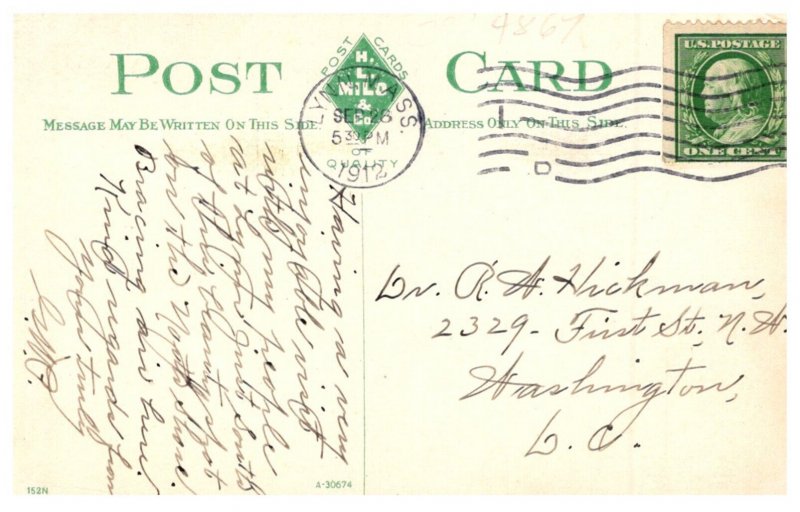 4867
POST CARD
POST CARDS
H.
L.D.
MILO
& Co.
OF
QUALITY
MESSAGE MAY BE WRITTEN ON THIS SIDE.
ADDRESS ONLY ON THIS SIDE.
LYNN, MASS.
SEP 26
5 30 PM
1912
U.S. POSTAGE
ONE CENT
Having a very
enjoyable visit
with my people
at Lynn, just south
of this beauty spot
on the North Shore.
Bracing air here.
Kind regards from
Yours truly
Dr. R. A. Hickman,
2329 - First St. N.W.
Washington,
D. C.
152N
A-30674